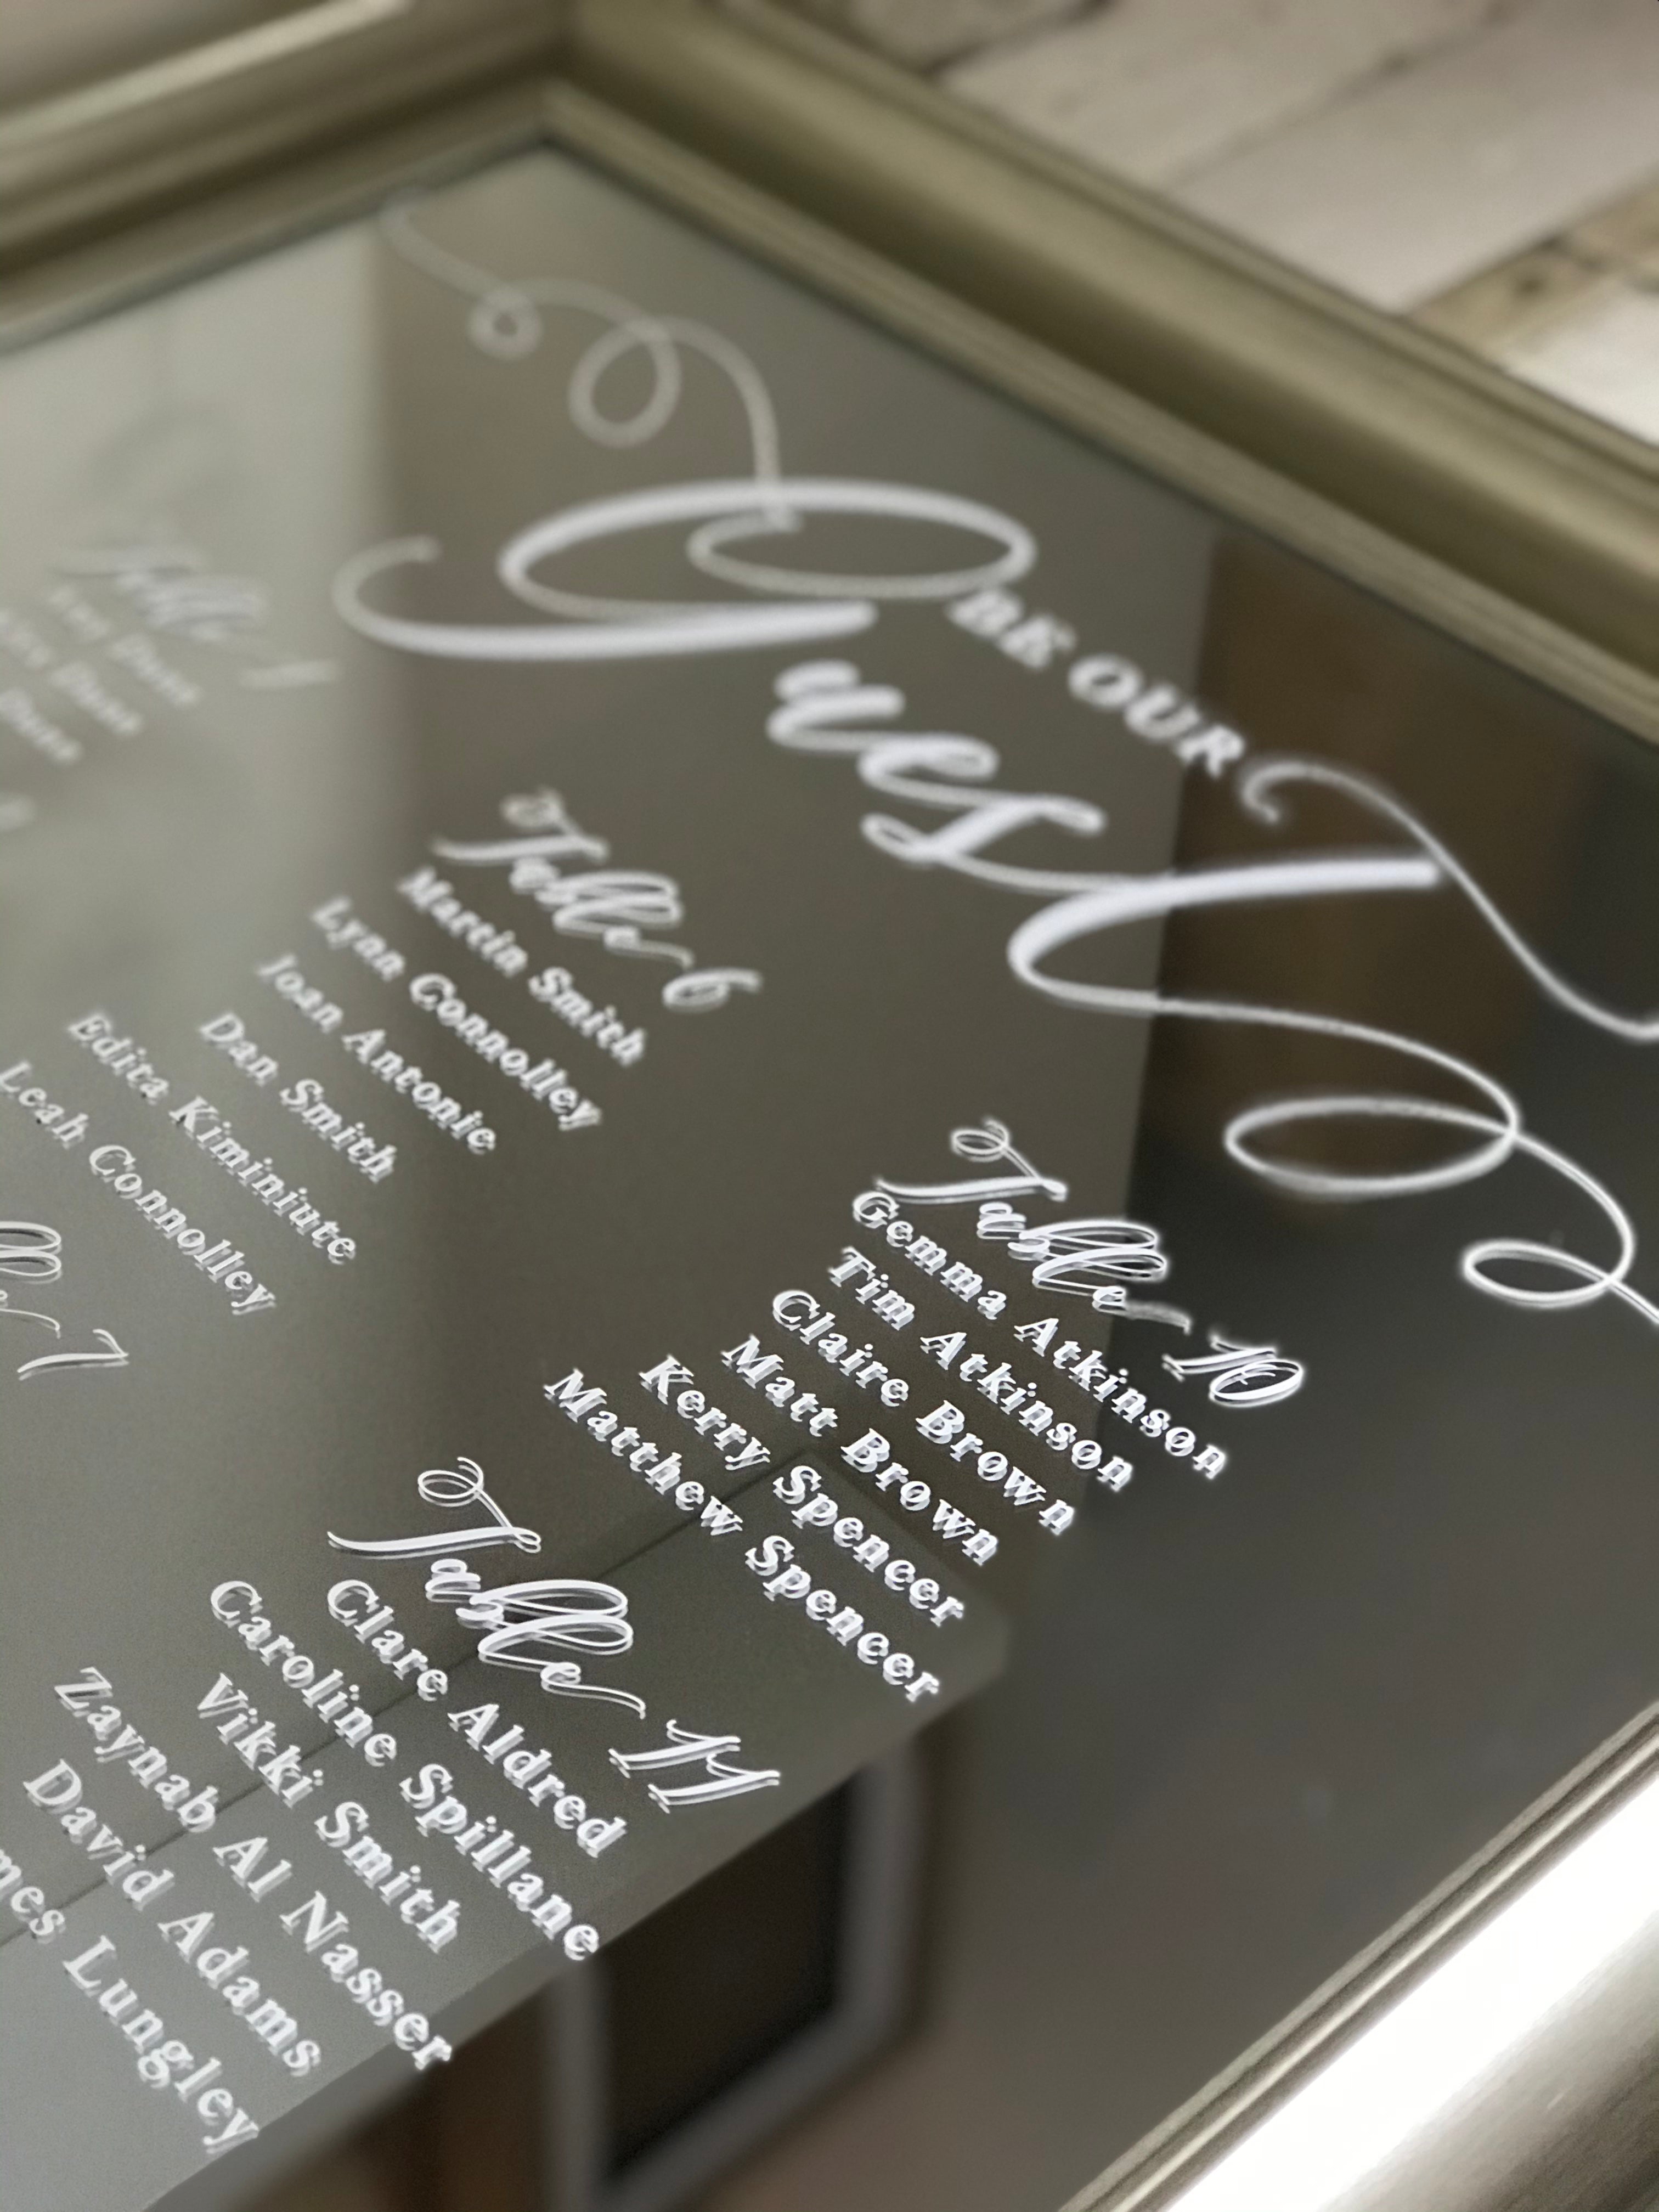 BE OUR
Guest
Table 1
Table 6
Martin Smith
Lynn Connolley
Joan Antonie
Dan Smith
Edita Kiminiute
Leah Connolley
7
Table 10
Gemma Atkinson
Tim Atkinson
Claire Brown
Matt Brown
Kerry Spencer
Matthew Spencer
Table 11
Clare Aldred
Caroline Spillane
Vikki Smith
Zaynab Al Nasser
David Adams
Lungley